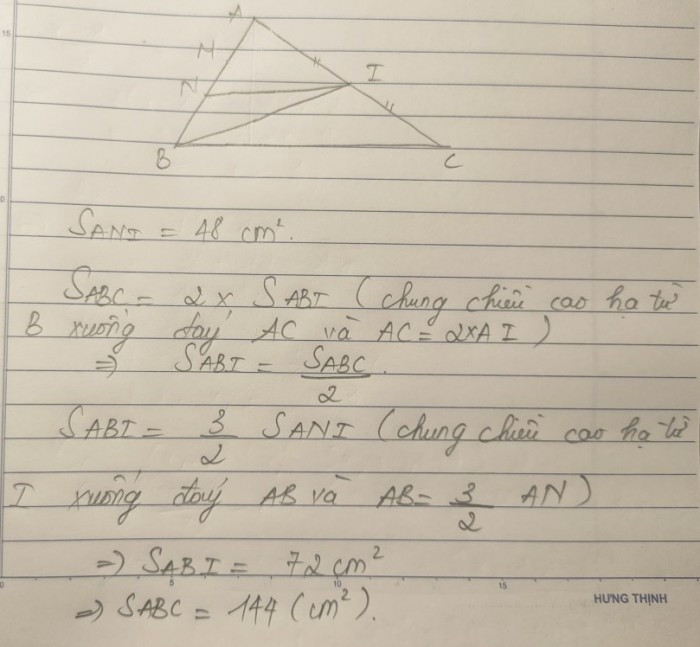 A
M
N
I
B
C
SANI = 48 cm².
SABC = 2 x SABI (chung chiều cao hạ từ
B xuống đáy AC và AC = 2xAI)
=> SABI = SABC/2.
SABI = 3/2 SANI (chung chiều cao hạ từ
I xuống đáy AB và AB = 3/2 AN)
=> SABI = 72 cm²
=> SABC = 144 (cm²).
HƯNG THỊNH
15
0
0
5
10
15